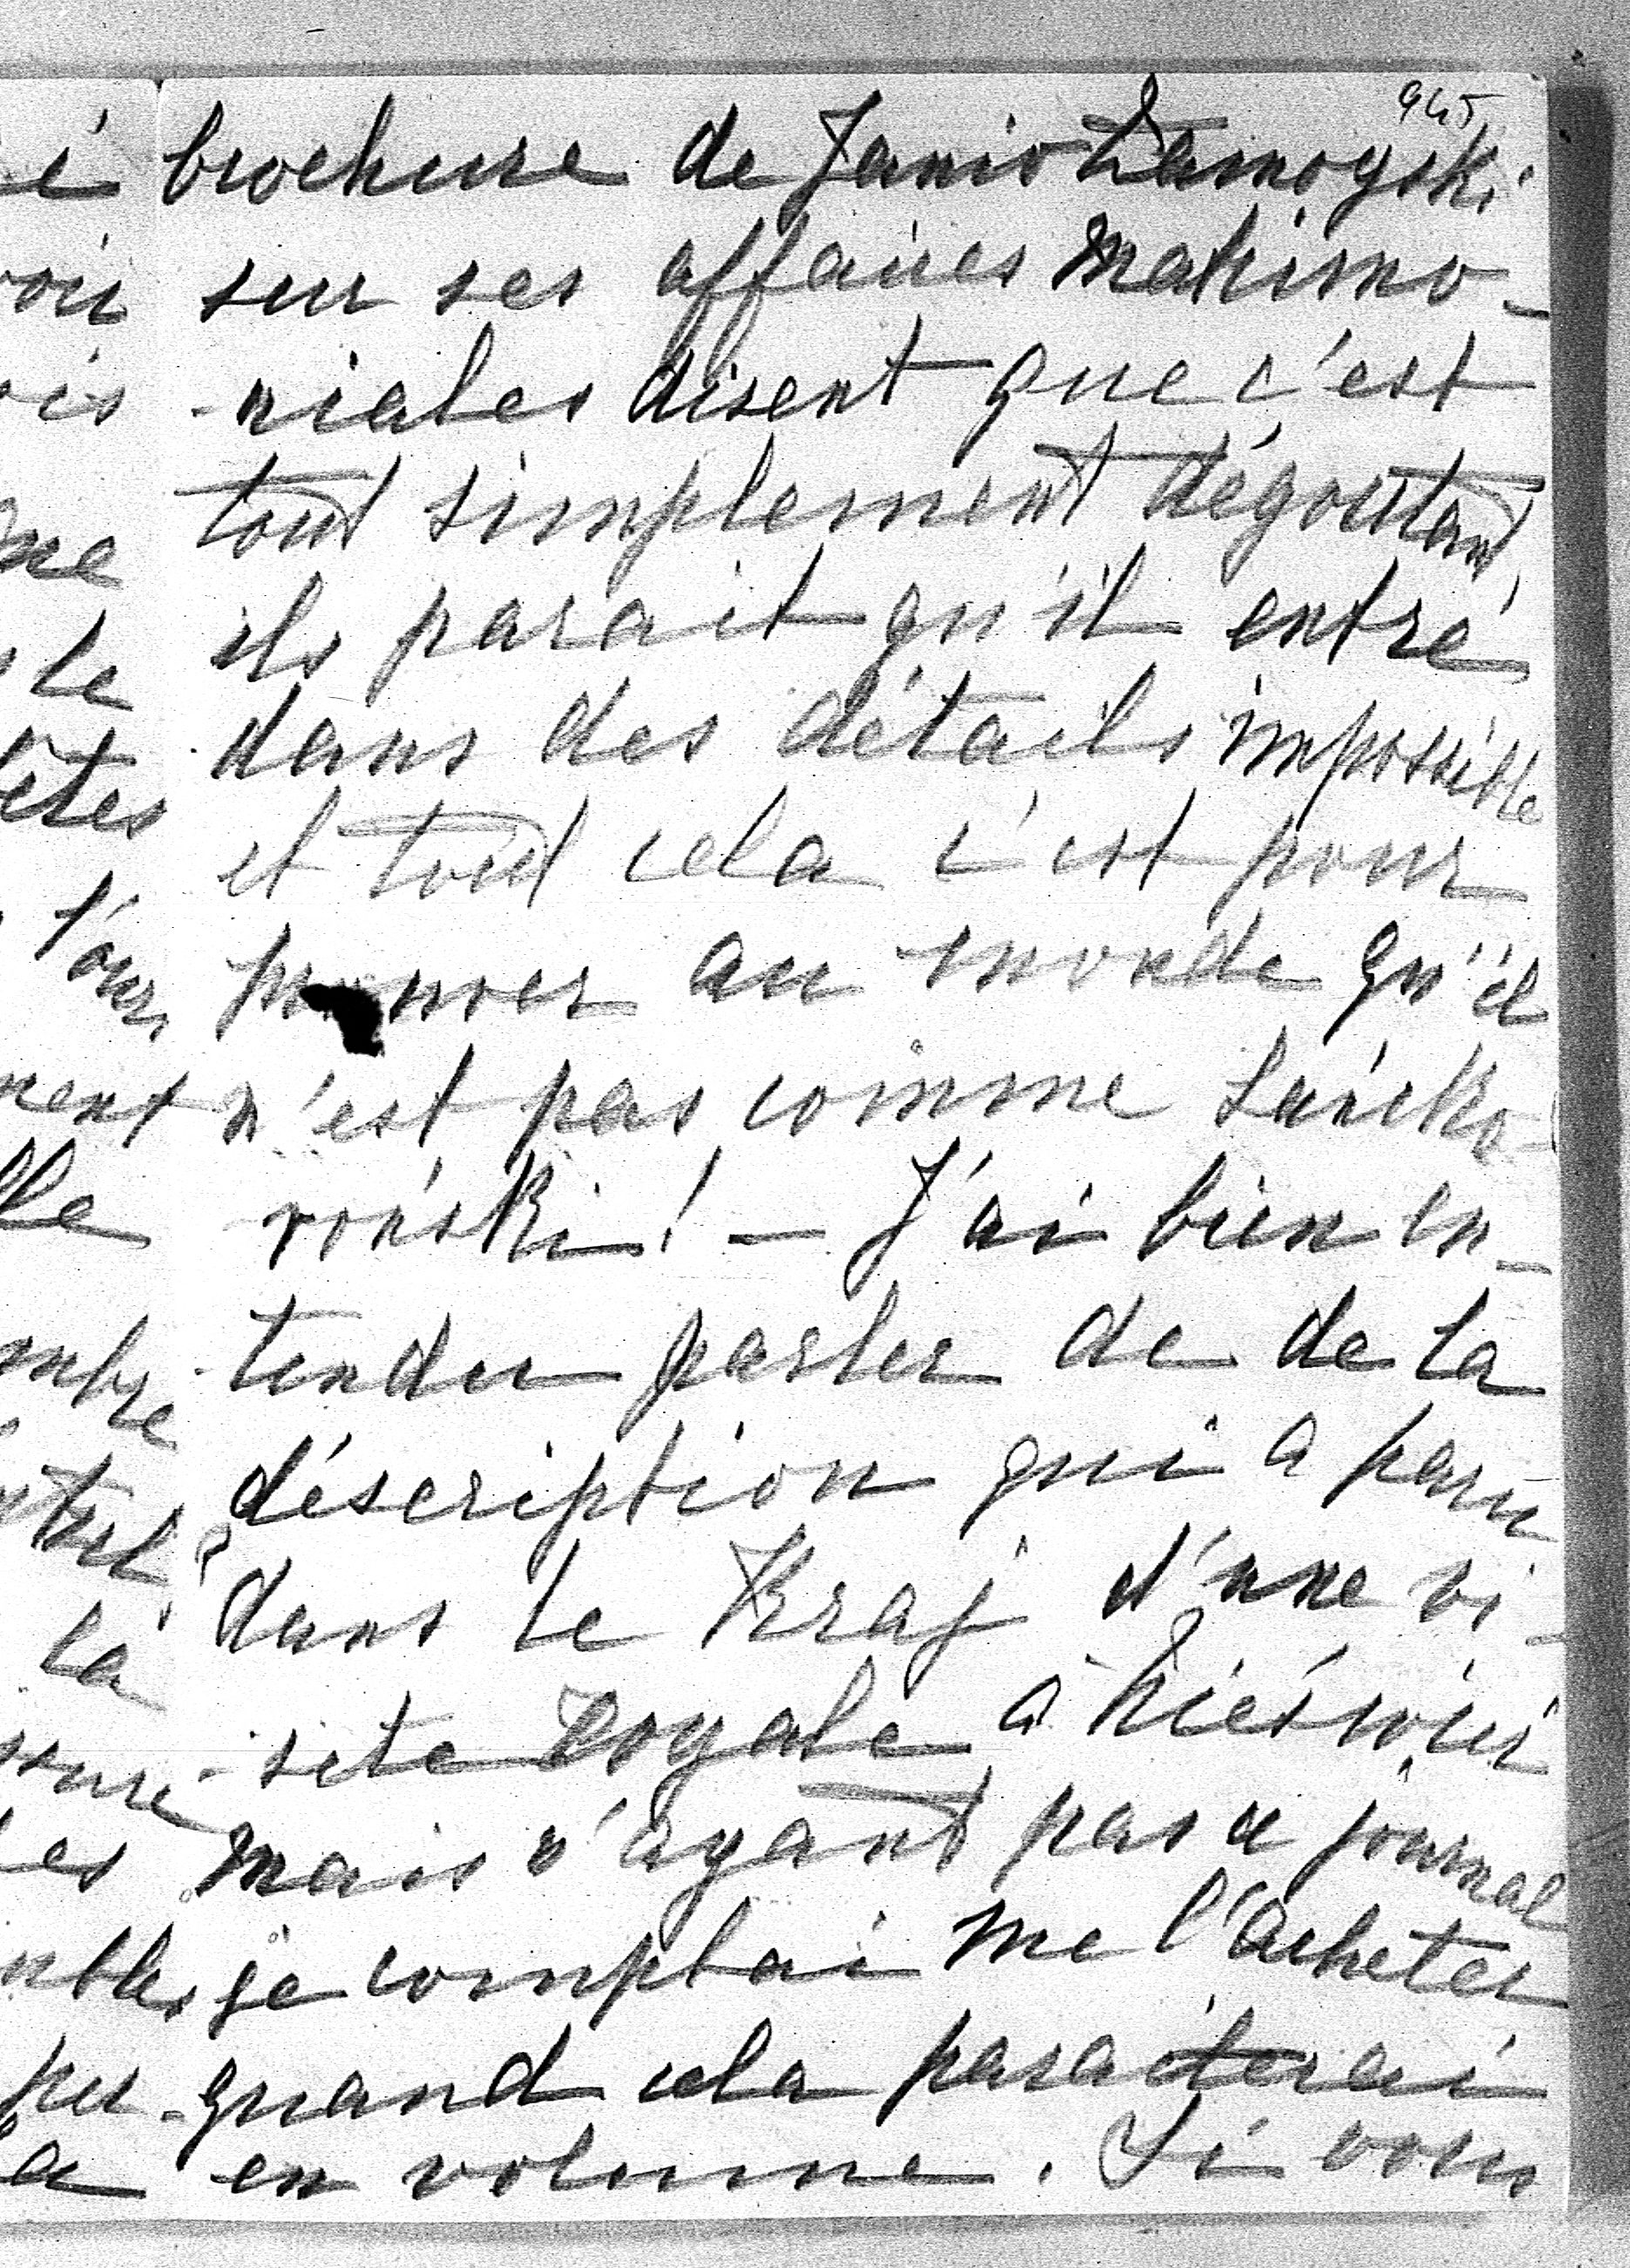 945
brochure de Janio Zamoyski
sur ses affaires matrimo-
-niales disent que c'est
tout simplement dégoutant,
ils parait qu'il entre
dans des détails impossible
et tout cela c'est pour
prouver au monde qu'il
n'est pas comme Lancko-
roński! - J'ai bien en-
-tendu parler de de la
déscription qui a paru
dans le Kraj d'une vi-
-site Royale à Nieśwież
mais n'ayant pas ce journal
je comptai me l'acheter
quand cela paraiterai
en volume. Si vous